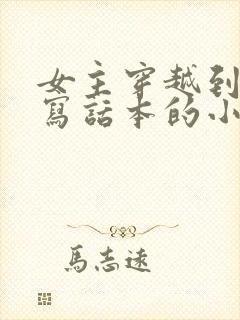 女主穿越到
寫話本的小
馬志遠